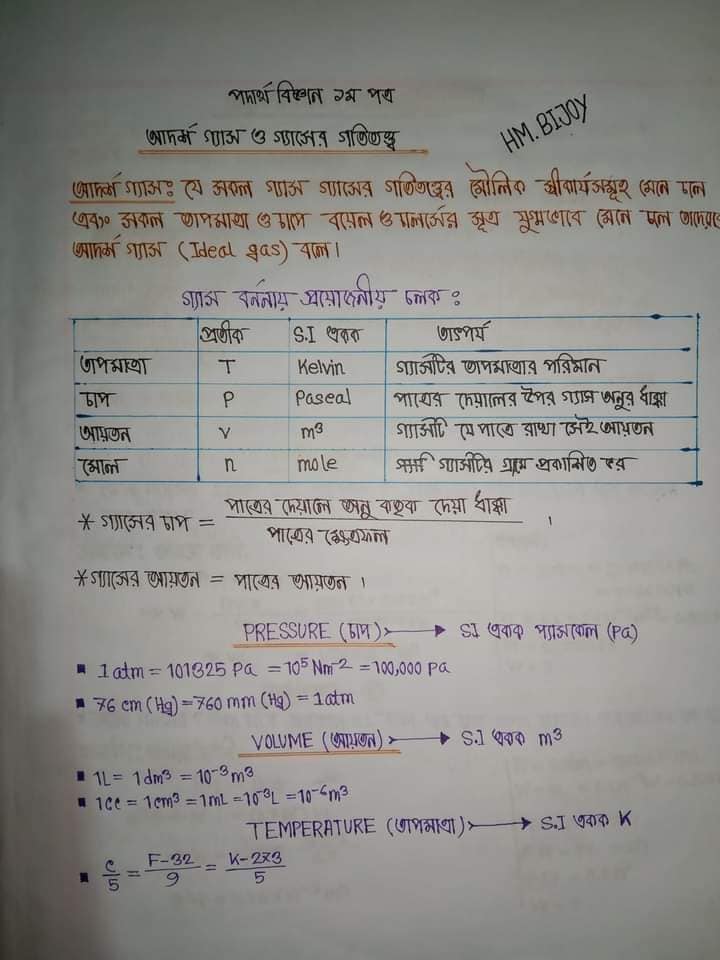 পদার্থ বিজ্ঞান ১ম পত্র
আদর্শ গ্যাস ও গ্যাসের গতিতত্ত্ব
HM.BIJOY
আদর্শ গ্যাসঃ যে সকল গ্যাস গ্যাসের গতিতত্ত্বের মৌলিক স্বীকার্যসমূহ মেনে চলে
এবং সকল তাপমাত্রা ও চাপে বয়েল ও চার্লসের সূত্র যুগ্মভাবে মেনে চলে তাদেরকে
আদর্শ গ্যাস (Ideal gas) বলে।
গ্যাস বর্ননায় প্রয়োজনীয় চলক :
প্রতীক S.I একক তাৎপর্য
তাপমাত্রা T Kelvin গ্যাসটির তাপমাত্রার পরিমান
চাপ P Paseal পাত্রের দেয়ালের উপর গ্যাস অনুর ধাক্কা
আয়তন V m³ গ্যাসটি যে পাত্রে রাখা সেই আয়তন
মোল n mole গ্যাসটির গ্রামে প্রকাশিত ভর
* গ্যাসের চাপ = পাত্রের দেয়ালে অনু কর্তৃক দেয়া ধাক্কা / পাত্রের ক্ষেত্রফল ।
* গ্যাসের আয়তন = পাত্রের আয়তন ।
PRESSURE (চাপ) → SI একক প্যাসকেল (Pa)
▪ 1 atm = 101325 Pa = 10⁵ Nm⁻² = 100,000 Pa
▪ 76 cm (Hg) = 760 mm (Hg) = 1 atm
VOLUME (আয়তন) → S.I একক m³
▪ 1L = 1 dm³ = 10⁻³ m³
▪ 1cc = 1cm³ = 1mL = 10⁻³L = 10⁻⁶m³
TEMPERATURE (তাপমাত্রা) → S.I একক K
▪ c/5 = F-32/9 = K-273/5